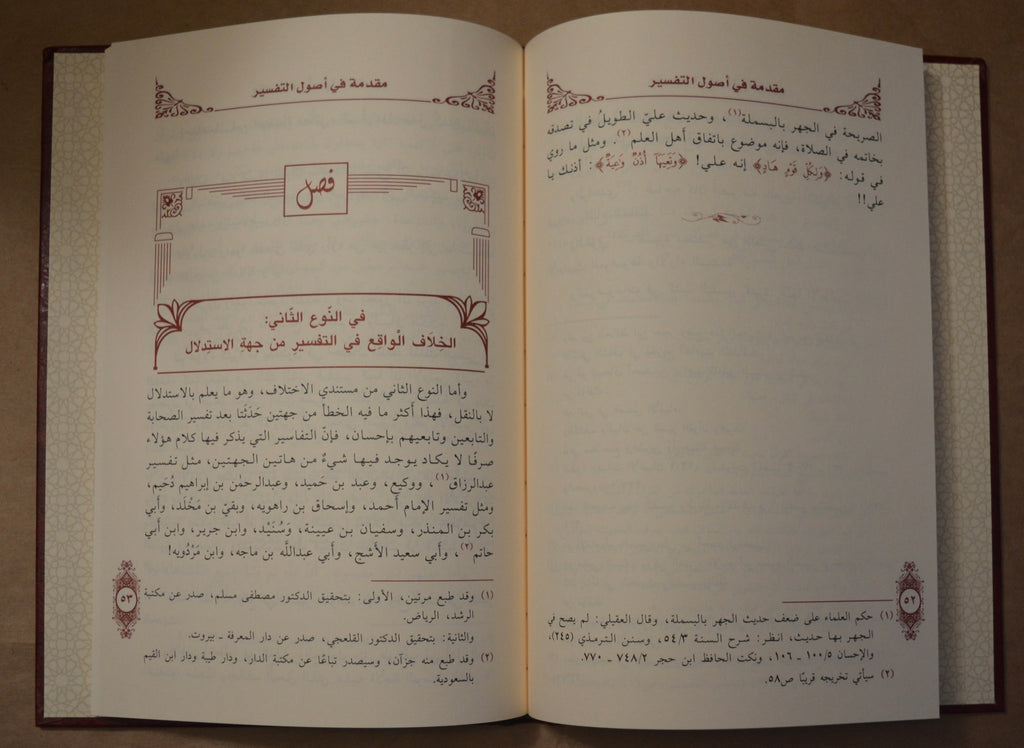 مقدمة في أصول التفسير
الصريحة في الجهر بالبسملة(١)، وحديث عليّ الطويلُ في تصدقه
بخاتمه في الصلاة، فإنه موضوع باتفاق أهل العلم(٢). ومثل ما روي
في قوله: ﴿وَلِكُلِّ قَوْمٍ هَادٍ﴾ إنه علي! ﴿وَتَعِيَهَآ أُذُنٌ وَٰعِيَةٌ﴾: أذنك يا
علي!!
(١) حكم العلماء على ضعف حديث الجهر بالبسملة، وقال العقيلي: لم يصح في
الجهر بها حديث، انظر: شرح السنة ٥٤/٣، وسنن الترمذي (٢٤٥)،
والإحسان ١٠٠/٥ ـ ١٠٦، ونكت الحافظ ابن حجر ٧٤٨/٢ ـ ٧٧٠.
(٢) سيأتي تخريجه قريبًا ص٥٨.
٥٢
مقدمة في أصول التفسير
فصل
في النّوع الثّاني:
الخِلَاف الْواقِع في التفسيرِ من جهةِ الاستِدلال
وأما النوع الثاني من مستندي الاختلاف، وهو ما يعلم بالاستدلال
لا بالنقل، فهذا أكثر ما فيه الخطأ من جهتين حَدَثَتا بعد تفسير الصحابة
والتابعين وتابعيهم بإحسان، فإنّ التفاسير التي يذكر فيها كلام هؤلاء
صرفًا لا يكاد يوجد فيها شيءٌ من هاتين الجهتين، مثل تفسير
عبدالرزاق(١)، ووكيع، وعبد بن حَميد، وعبدالرحمٰن بن إبراهيم دُحَيم،
ومثل تفسير الإمام أحمد، وإسحاق بن راهويه، وبقيّ بن مَخْلَد، وأبي
بكر بن المنذر، وسفيان بن عيينة، وَسُنَيْد، وابن جرير، وابن أبي
حاتم(٢)، وأبي سعيد الأشج، وأبي عبداللَّه بن ماجه، وابن مَرْدُويه!
(١) وقد طبع مرتين، الأولى: بتحقيق الدكتور مصطفى مسلم، صدر عن مكتبة
الرشد، الرياض.
والثانية: بتحقيق الدكتور القلعجي، صدر عن دار المعرفة ـ بيروت.
(٢) وقد طبع منه جزآن، وسيصدر تباعًا عن مكتبة الدار، ودار طيبة ودار ابن القيم
بالسعودية.
٥٣